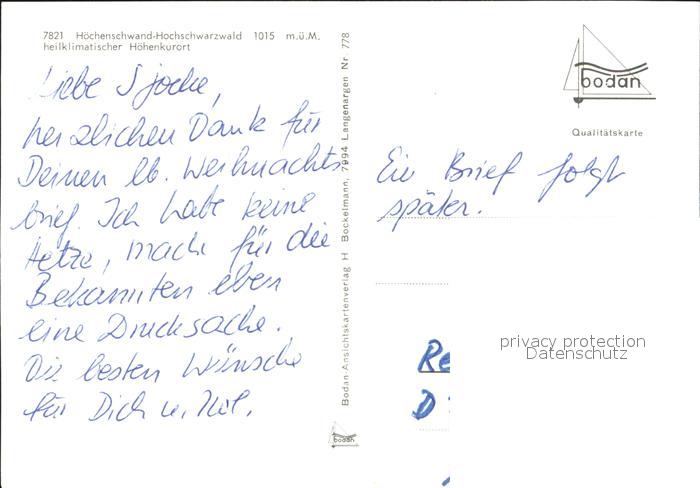 7821 Höchenschwand-Hochschwarzwald 1015 m.ü.M.
heilklimatischer Höhenkurort
Liebe
herzlichen Dank für
Deinen lb. Weihnachts-
brief. Ich habe keine
Hetze, mach für die
Bekannten eben
eine Drucksache.
Die besten Wünsche
für Dich u.
Bodan-Ansichtskartenverlag H Bockelmann, 7994 Langenargen Nr. 778
bodan
bodan
Qualitätskarte
Ein Brief folgt
später.
privacy protection
Datenschutz
Re
D